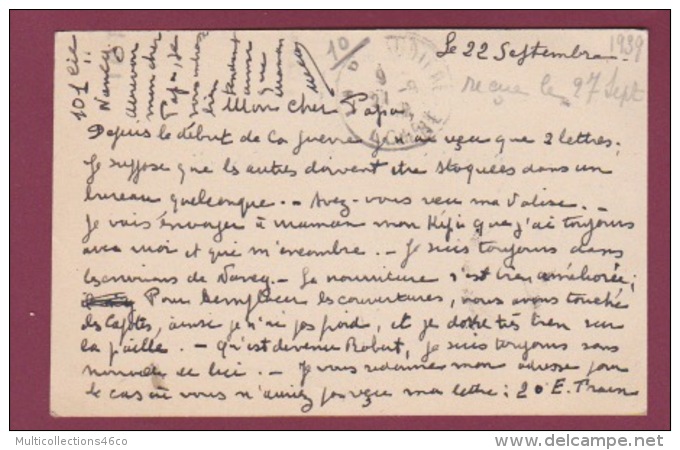 Le 22 Septembre. 1939
reçue le 27 Sept
Mon cher Papa,
Depuis le début de la guerre je n'ai reçu que 2 lettres.
Je suppose que les autres doivent être stoquées dans un
bureau quelconque. - Avez-vous reçu ma valise. -
Je vais envoyer à maman mon Képi que j'ai toujours
avec moi et qui m'encombre. - Je suis toujours dans
les environs de Nancy. - La nourriture s'est bien améliorée;
Pour remplacer les couvertures, nous avons touché
des capotes, ainsi je n'ai pas froid, et je dors très bien sur
la paille. - Qu'est devenu Robert, je suis toujours sans
nouvelles de lui. - Je vous redonne mon adresse pour
le cas où vous n'auriez pas reçu ma lettre: 20 E. Train
10 1 Cie
Nancy.
Au revoir
mon cher
Papa, je
bien
tendrement
ainsi
que
Maman
Multicollections46co
www.delcampe.net